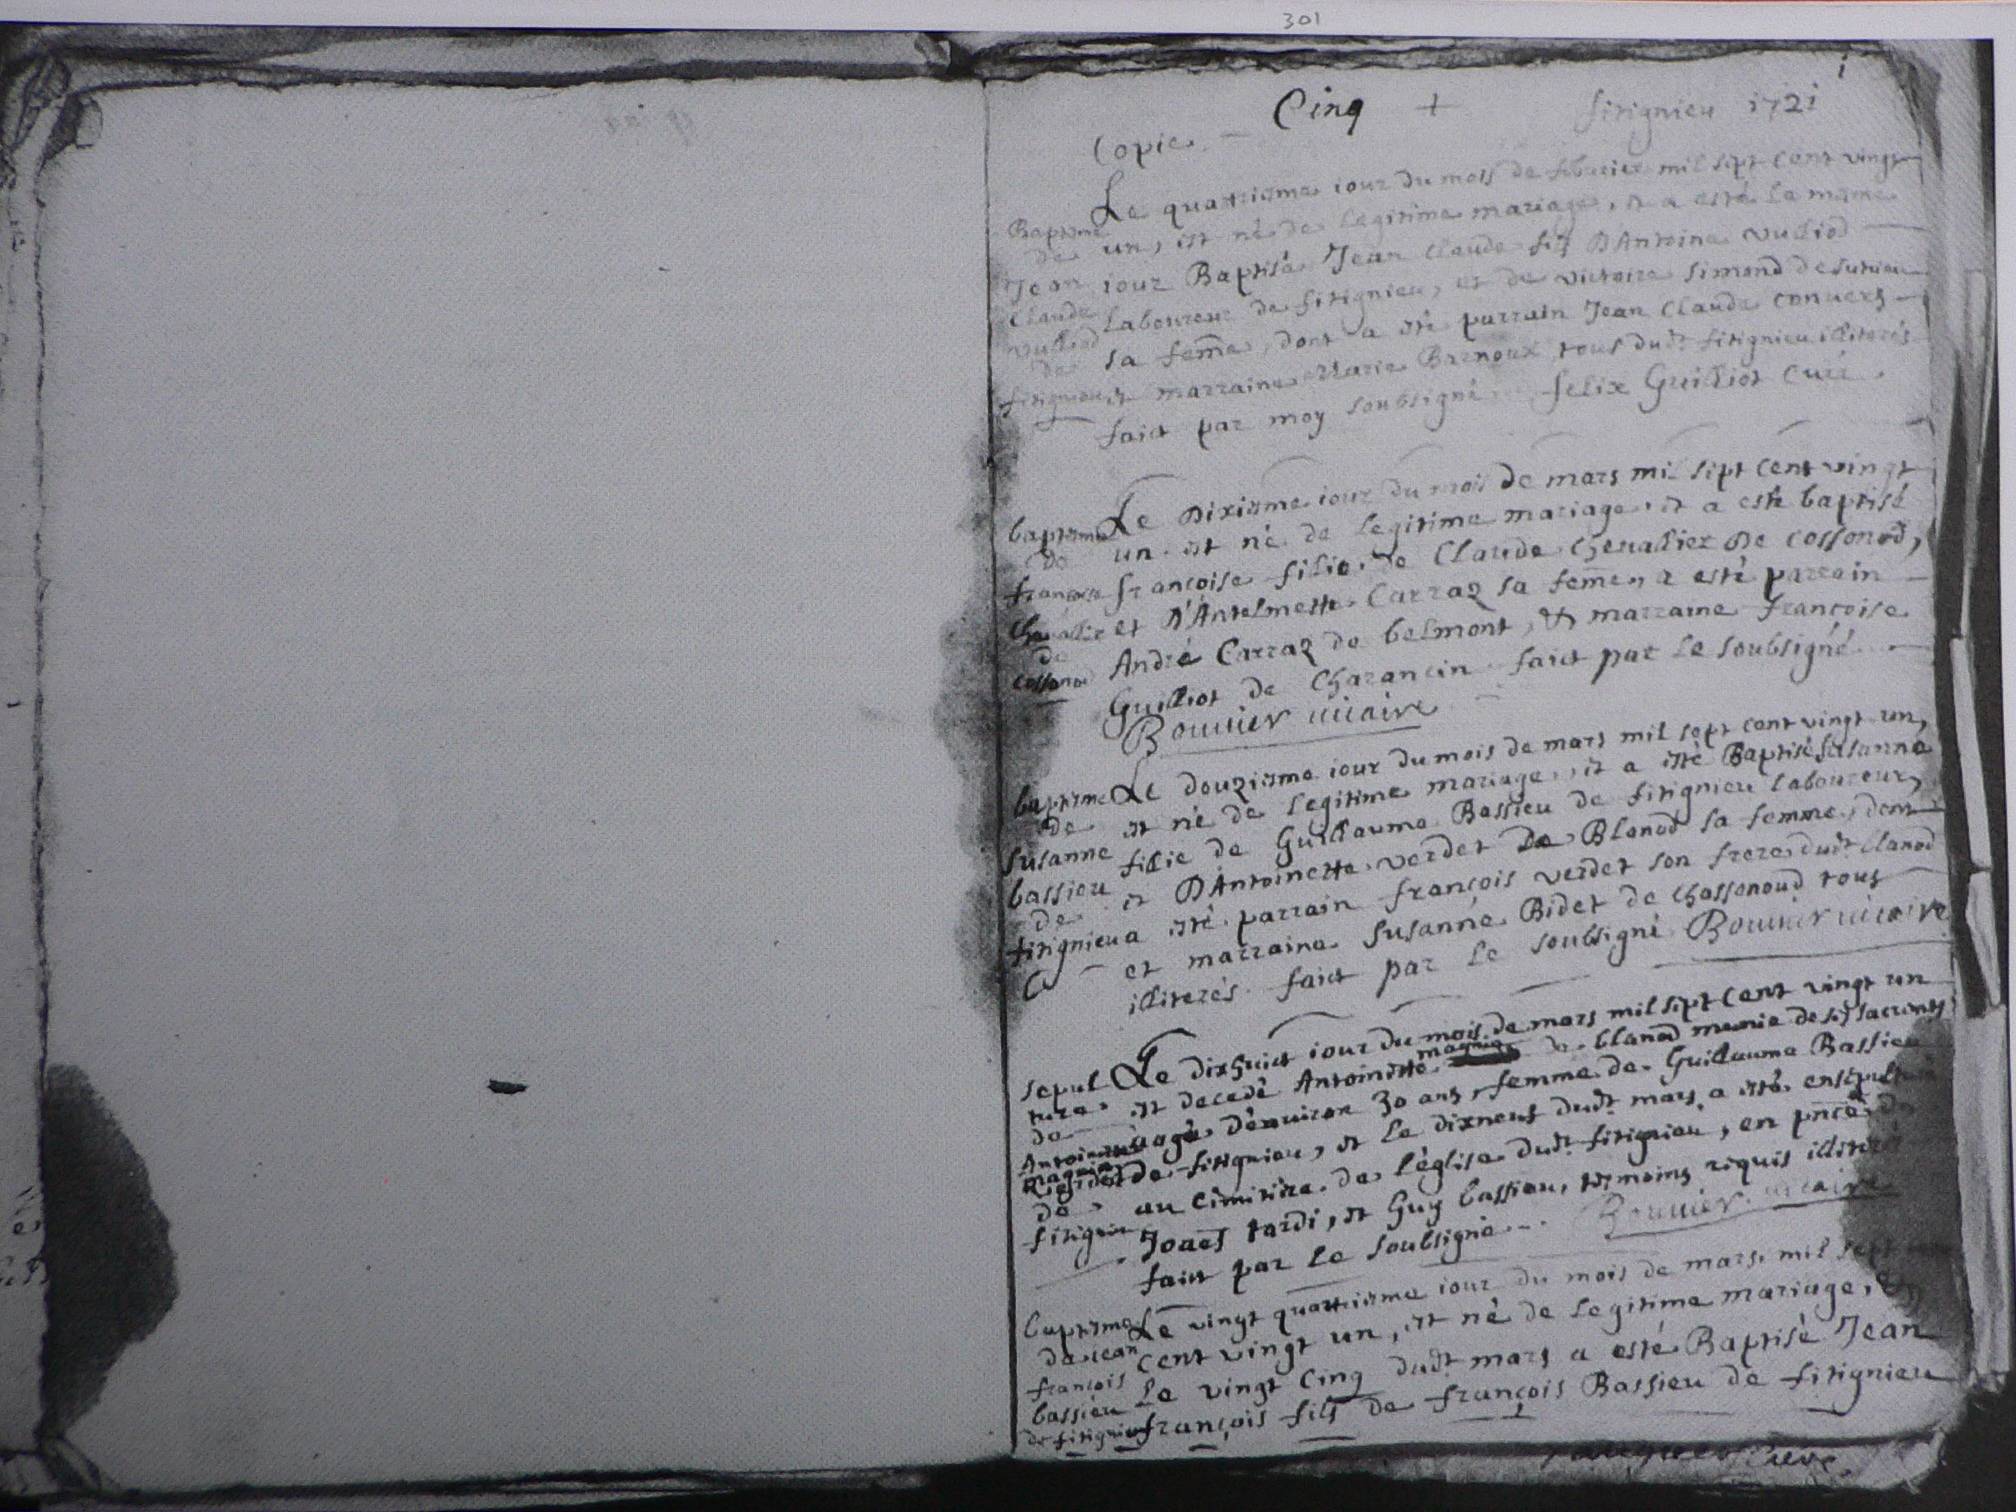 301
1
Cinq +
fitignieu 1721
Copie
Le quattriesme iour du mois de febvrier mil sept cent vingt
Baptisme
de
Jean
Claude
Vulliod
de
fitignieu
un, est né de legitime mariage, et a esté le mesme
iour Baptisé Jean Claude fils D'Antoine Vulliod
Laboureur de fitignieu, et de Victoire Simond de
sa feme, dont a esté parrain Jean Claude Convers
et marraine Marie tous dudt fitignieu illiterés
faict par moy soubsigné felix Guilliot Curé
Le Dixiesme iour du mois de mars mil sept cent vingt
baptisme
de
francoise
Chevallier
de
Cossonod
un est né de legitime mariage, et a esté baptisé
francoise fillie de Claude Chevallier de Cossonod,
et D'Antelmette Carraz sa feme, a esté parrain
André Carraz de belmont, et marraine francoise
Guilliot de Charancin faict par le soubsigné
Bouvier vicaire
baptisme
de
Susanne
bassieu
de
fitignieu
Le douziesme iour du mois de mars mil sept cent vingt un,
est né de legitime mariage, et a esté Baptisé Susanne
fillie de Guillaume Bassieu de fitignieu laboureur,
et D'Antoinette verdet de Blanod sa femme, dont
a esté parrain francois verdet son frere dudt blanod
et marraine Susanne Bidet de Chossonoud tous
illiterés faict par le soubsigné Bouvier vicaire
sepul
ture
de
Antoinette
magnin
de
fitignieu
Le dixhuict iour du mois de mars mil sept cent vingt un
est decedé Antoinette magnin de blanod munie de ses sacremts
agé d'environ 30 ans, femme de Guillaume Bassieu
de fitignieu, et le dixneuf dudt mars a esté
au cimitiere de l'église dudt fitignieu, en pnce de
tardi, et Guy bassieu, tesmoins requis illiterés
faict par le soubsigné Bouvier vicaire
baptisme
de Jean
francois
bassieu
de fitignieu
Le vingt quattriesme iour du mois de mars mil sept
cent vingt un, est né de legitime mariage, et
Le vingt cinq dudt mars a esté Baptisé Jean
françois fils de françois Bassieu de fitignieu